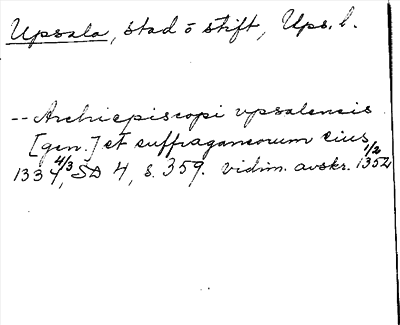 Upsala, stad o stift, Ups. l.
-- Archiepiscopi vpsalensis
[gen.] et suffraganeorum eius
1334 4/3, SD 4, s. 359. vidim. avskr. 1352 1/2